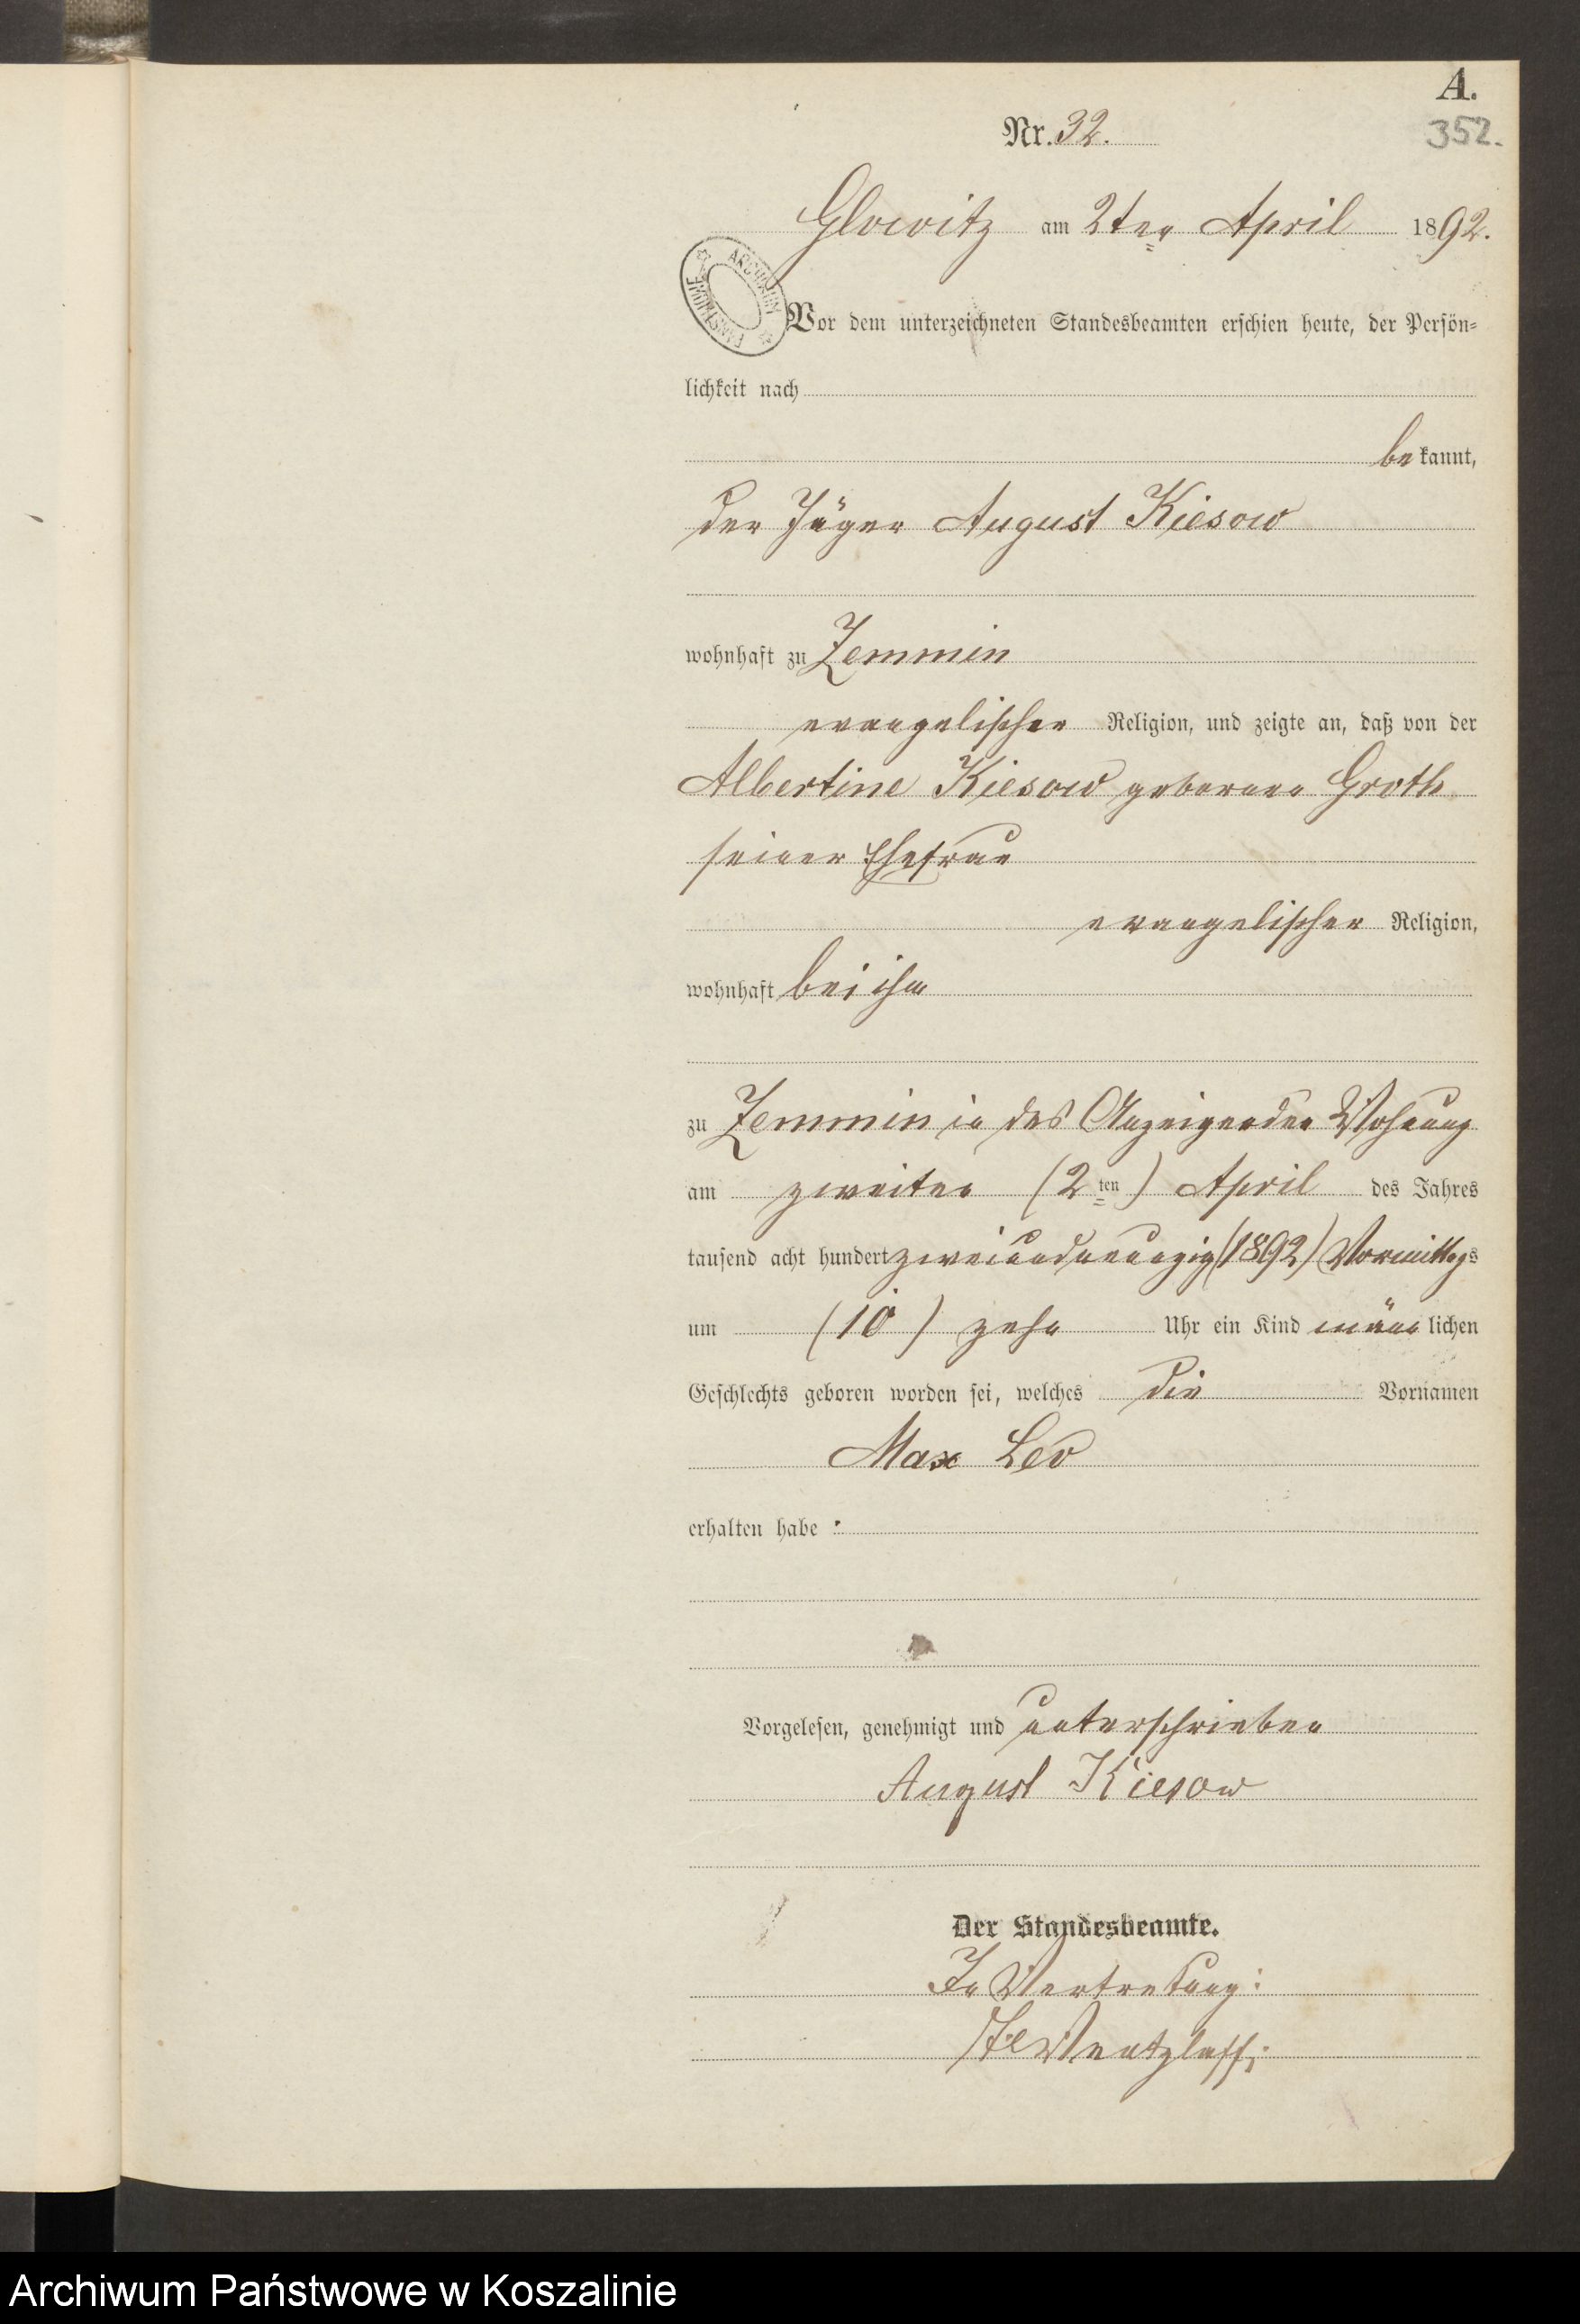 A.
352.
Nr. 32.
Glowitz am 2ten April 1892.
ARCHIWUM PAŃSTWOWE
Vor dem unterzeichneten Standesbeamten erschien heute, der Persön-
lichkeit nach
bekannt,
der Jäger August Kiesow
wohnhaft zu Zemmin
evangelischer Religion, und zeigte an, daß von der
Albertine Kiesow geborenen Groth
seiner Ehefrau
evangelischer Religion,
wohnhaft bei ihm
zu Zemmin in des Anzeigenden Wohnung
am zweiten (2ten) April des Jahres
tausend acht hundert zweiundneunzig (1892) Vormittags
um (10) zehn Uhr ein Kind männlichen
Geschlechts geboren worden sei, welches die Vornamen
Max Leo
erhalten habe.
Vorgelesen, genehmigt und unterschrieben
August Kiesow
Der Standesbeamte.
In Vertretung:
Wentzlaff.
Archiwum Państwowe w Koszalinie